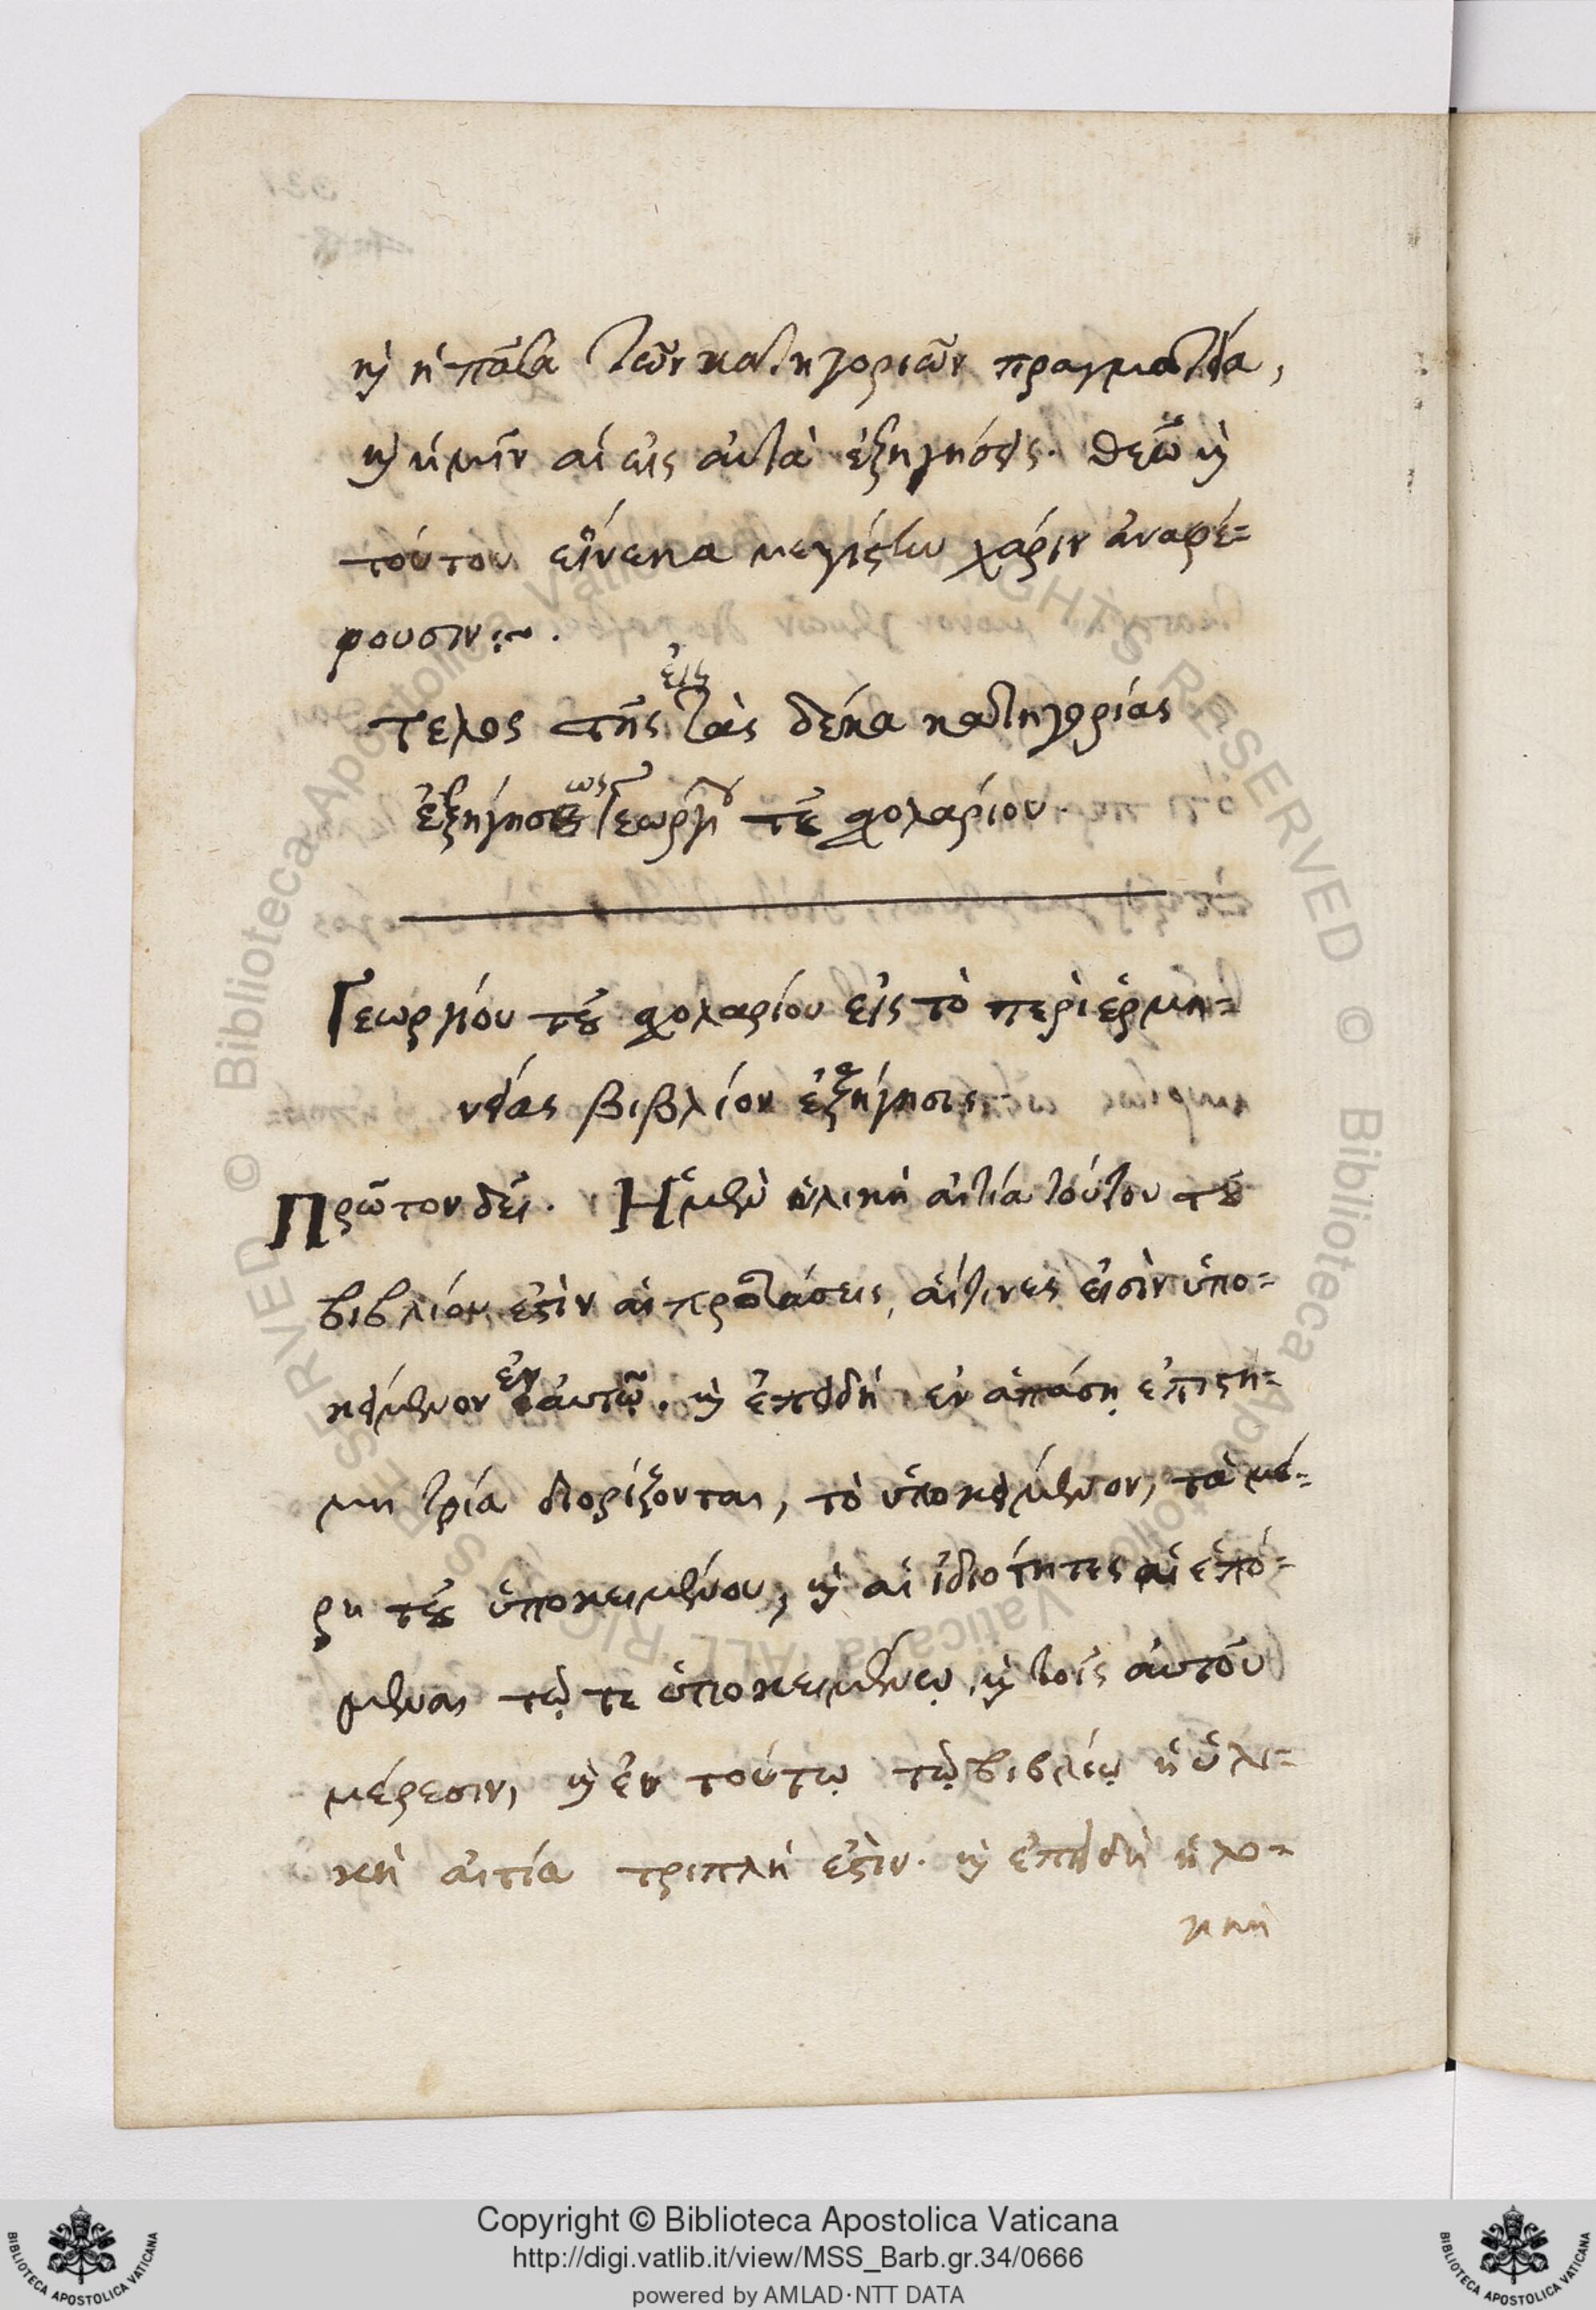 καὶ ἡ πᾶσα τῶν κατηγοριῶν πραγματεία,
καὶ ἡμῖν αἱ εἰς αὐτὰ ἐξηγήσεις. θεῶ καὶ
τούτου εἵνεκα μεγίστην χάριν ἀναφέ=
ρουσιν:~.
Τελος τῆς εἰς τὰς δέκα κατηγορίας
ἐξηγήσεως Γεωργίου τοῦ σχολαρίου.
Γεωργίου τοῦ σχολαρίου εἰς τὸ περὶ ἑρμη=
νείας βιβλίον ἐξήγησις.
Πρῶτον δεῖ. Ἡ μὲν ὑλικὴ αἰτία τούτου τοῦ
βιβλίου ἐστὶν αἱ προτάσεις, αἵτινες εἰσὶν ὑπο=
κείμενον ἐν αὐτῷ. καὶ ἐπειδὴ ἐν ἁπάσῃ ἐπιστή=
μη τρία διορίζονται, τὸ ὑποκείμενον, τὰ μέ=
ρη τοῦ ὑποκειμένου, καὶ αἱ ἰδιότητες αἱ ἑπό=
μεναι τῷ τε ὑποκειμένῳ, καὶ τοῖς αὐτοῦ
μέρεσιν, καὶ ἐν τούτῳ τῷ βιβλίῳ ἡ ὑλι=
κὴ αἰτία τριπλὴ ἐστὶν. καὶ ἐπειδὴ ἡ λο=
γικὴ
Copyright © Biblioteca Apostolica Vaticana
http://digi.vatlib.it/view/MSS_Barb.gr.34/0666
powered by AMLAD·NTT DATA
© Biblioteca Apostolica Vaticana ALL RIGHTS RESERVED
BIBLIOTECA APOSTOLICA VATICANA
BIBLIOTECA APOSTOLICA VATICANA